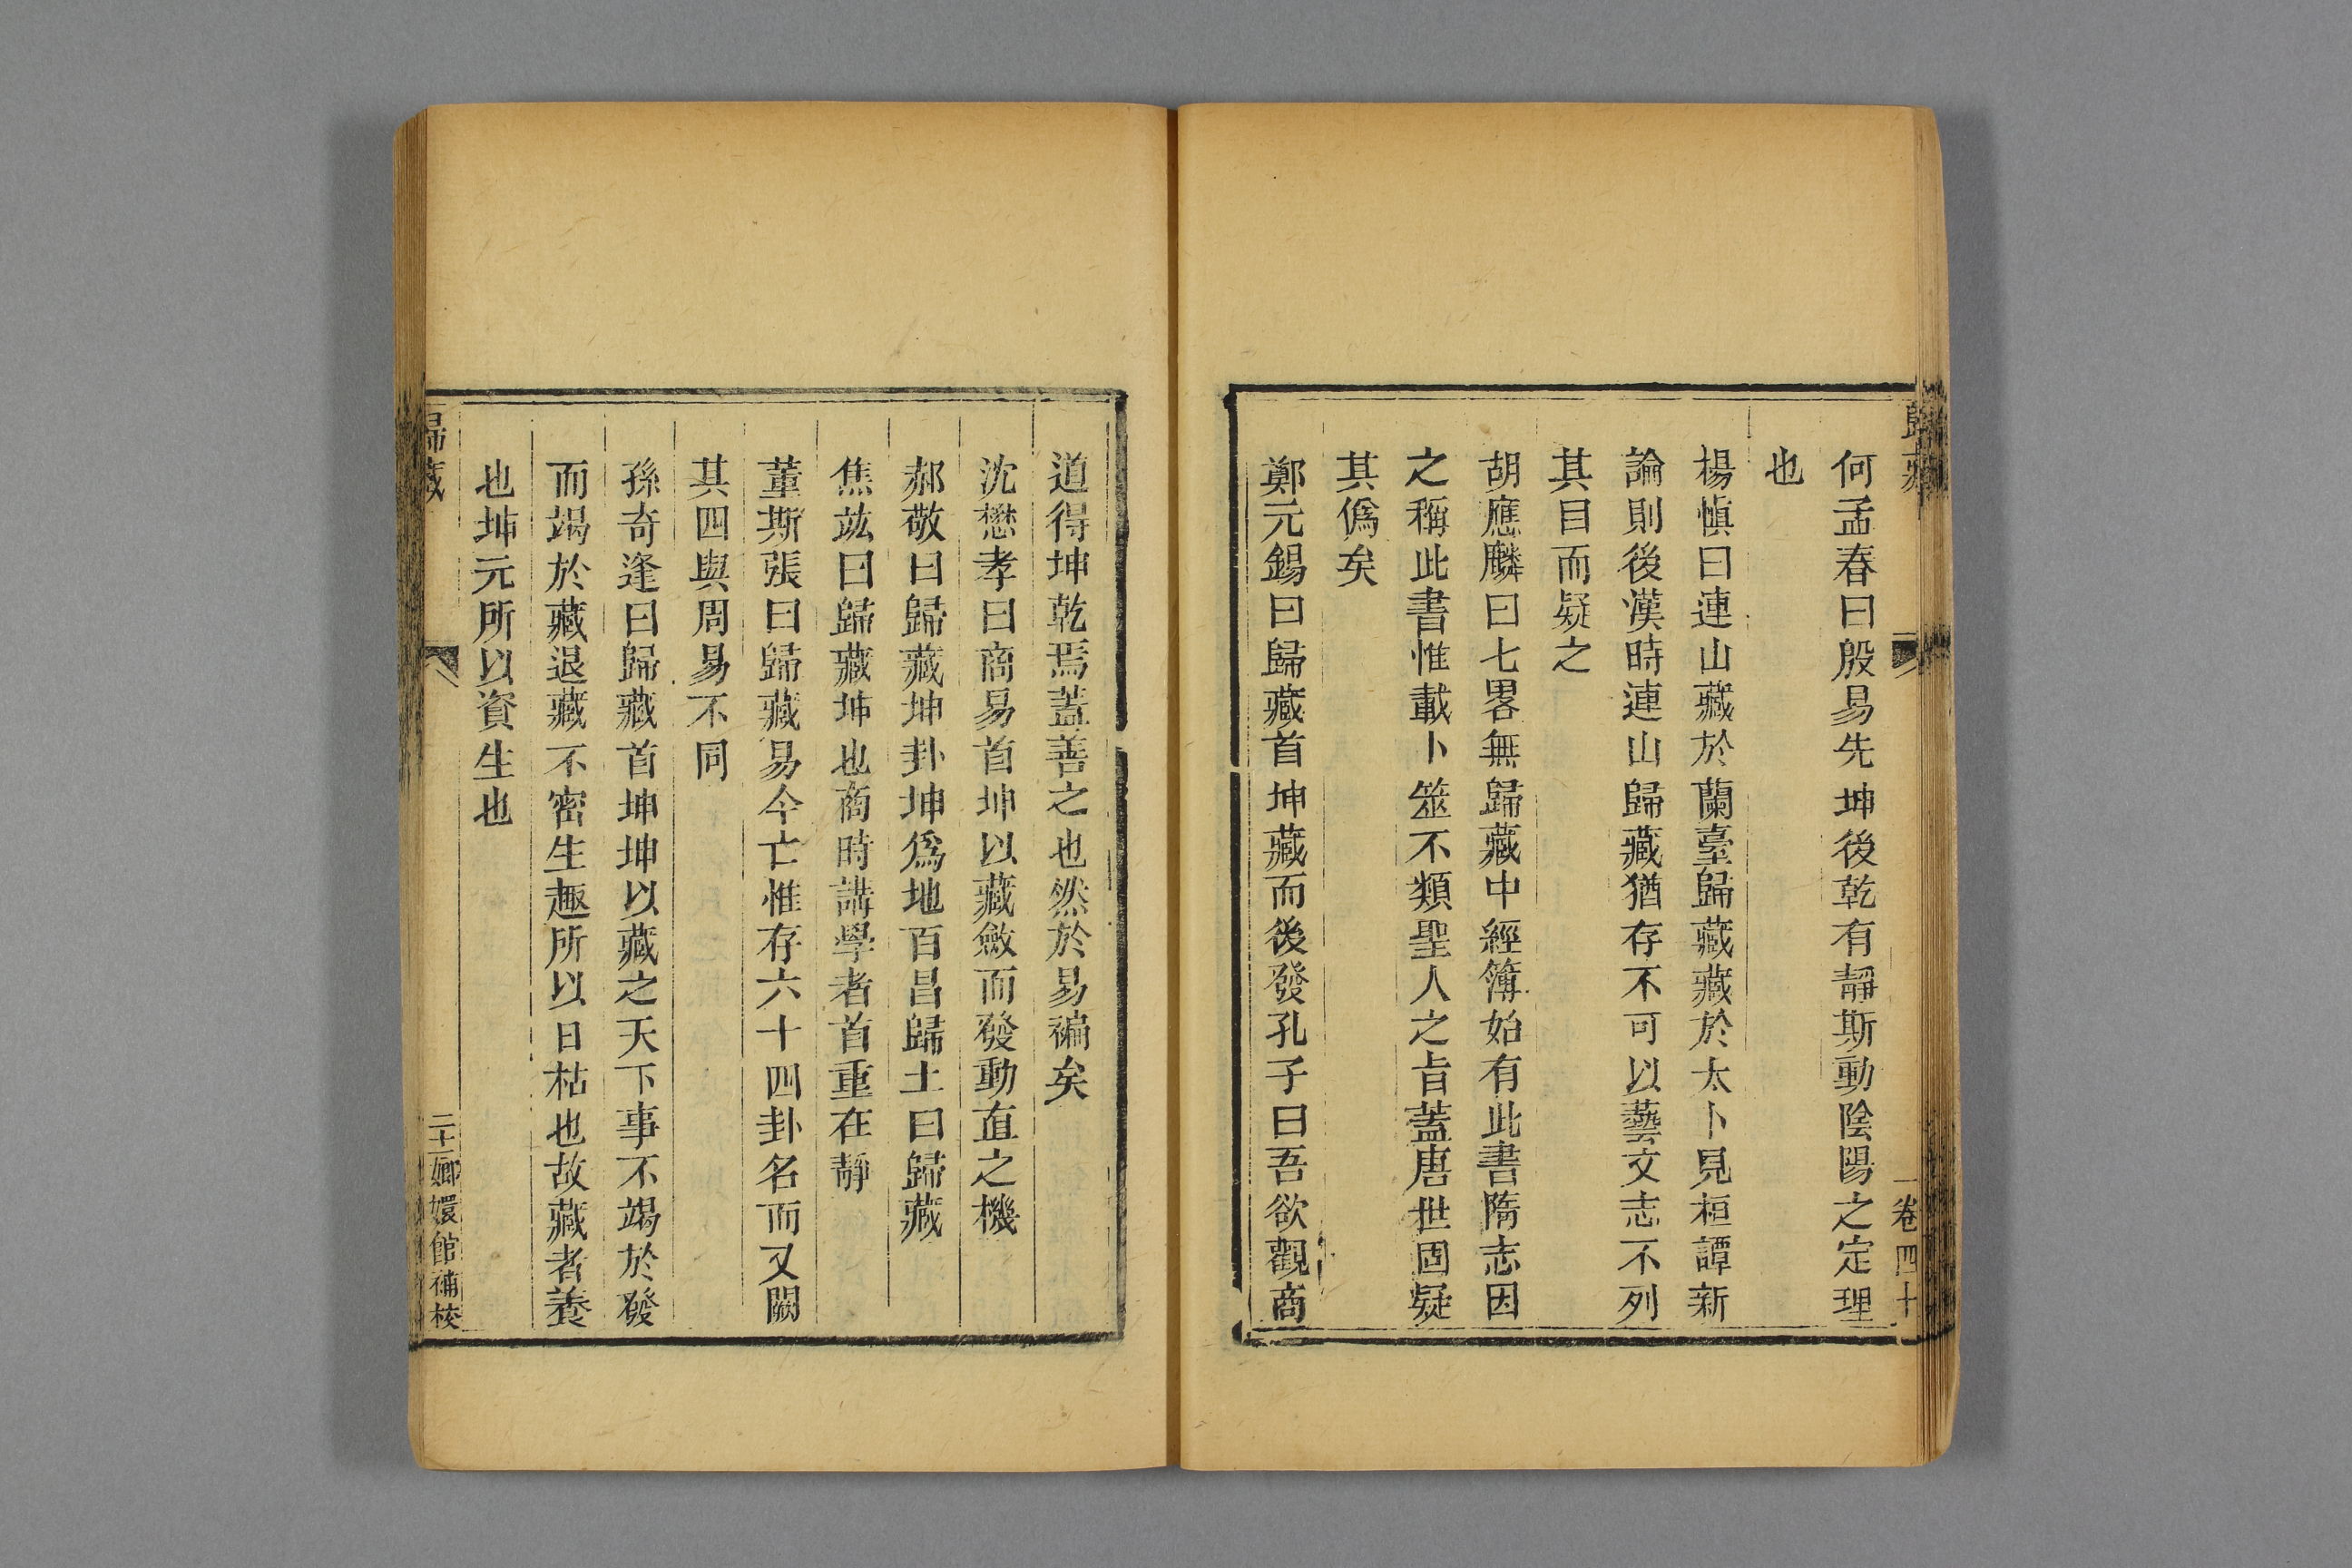 歸藏
卷四十
何孟春曰殷易先坤後乾有靜斯動陰陽之定理
也
楊慎曰連山藏於蘭臺歸藏藏於太卜見桓譚新
論則後漢時連山歸藏猶存不可以藝文志不列
其目而疑之
胡應麟曰七畧無歸藏中經簿始有此書隋志因
之稱此書惟載卜筮不類聖人之旨蓋唐世固疑
其僞矣
鄭元錫曰歸藏首坤藏而後發孔子曰吾欲觀商
道得坤乾焉蓋善之也然於易褊矣
沈懋孝曰商易首坤以藏斂而發動直之機
郝敬曰歸藏坤卦坤爲地百昌歸土曰歸藏
焦竑曰歸藏坤也商時講學者首重在靜
董斯張曰歸藏易今亡惟存六十四卦名而又闕
其四與周易不同
孫奇逢曰歸藏首坤坤以藏之天下事不竭於發
而竭於藏退藏不密生趣所以日枯也故藏者養
也坤元所以資生也
歸藏
二十一 嫏嬛館補校